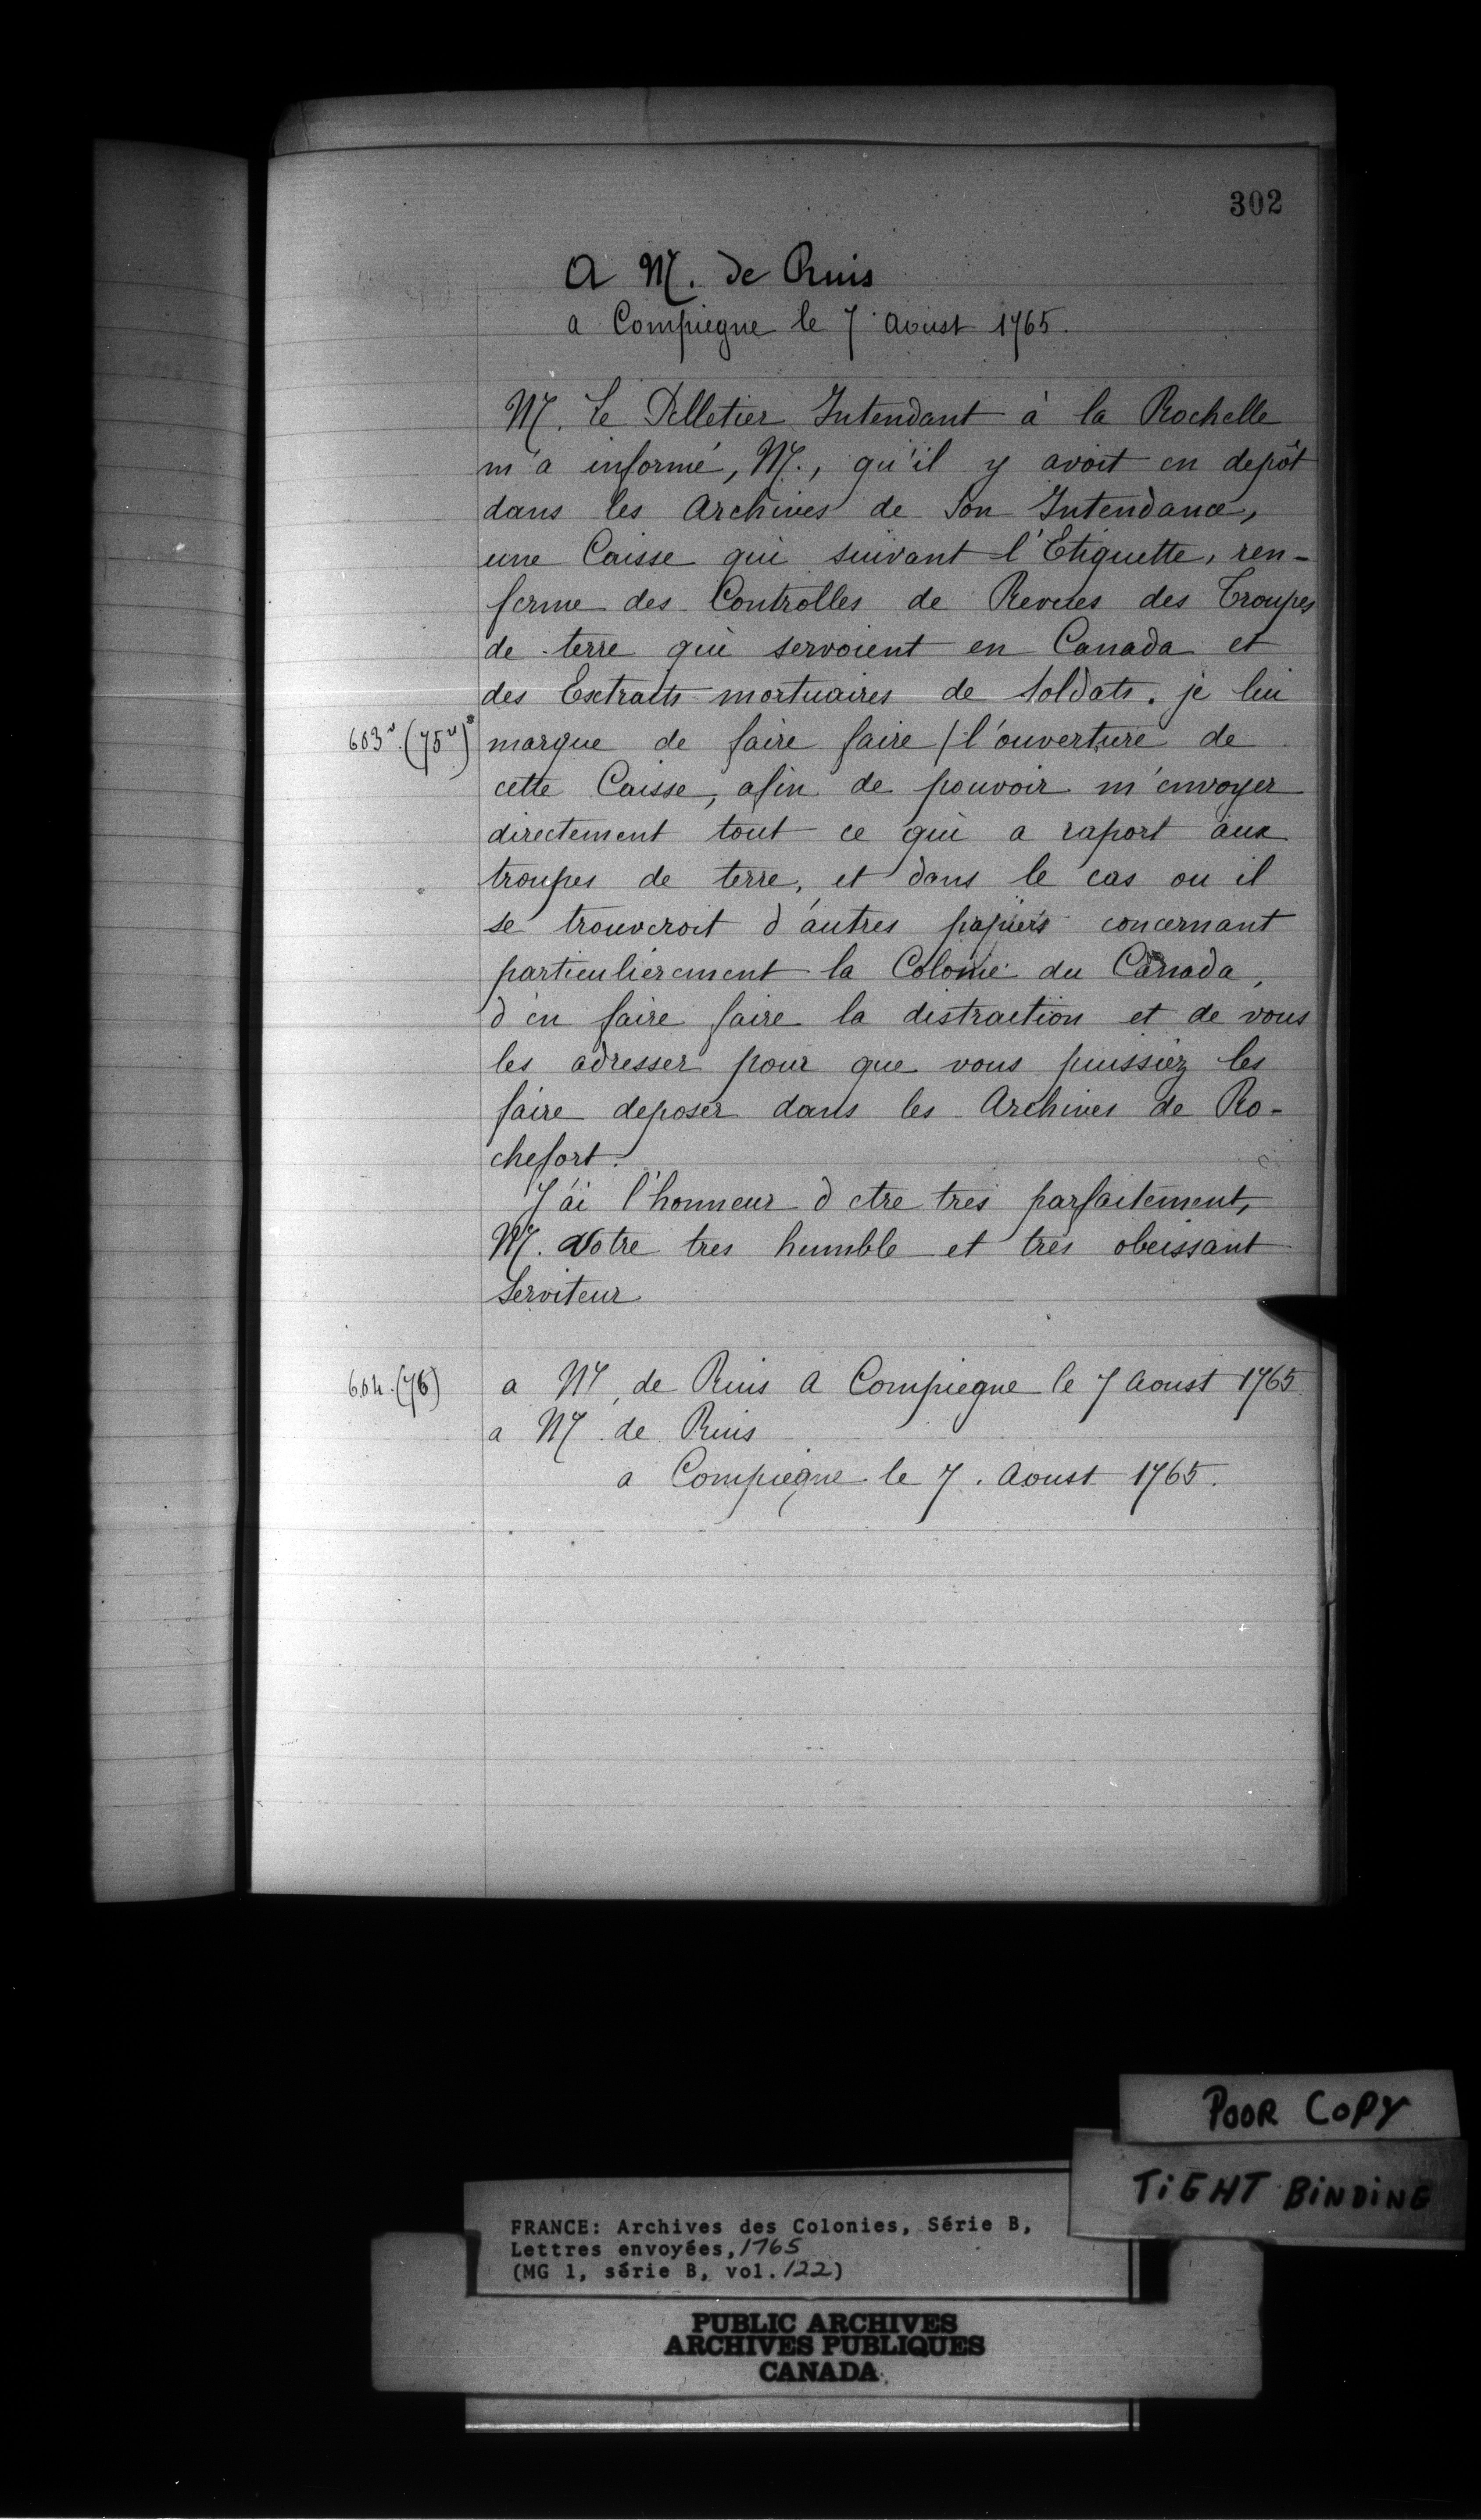 302
A M. de Ruis
a Compiegne le 7 Aoust 1765.
M. Le Pelletier Intendant à la Rochelle
m'a informé, M., qu'il y avoit en depôt
dans les Archives de Son Intendance,
une Caisse qui suivant l'Etiquette, ren-
ferme des Controlles de Revues des Troupes
de terre qui servoient en Canada et
des Extraits mortuaires de Soldats. je lui
603v. (75v)* marque de faire faire / l'ouverture de
cette Caisse, afin de pouvoir m'envoyer
directement tout ce qui a raport aux
troupes de terre, et dans le cas ou il
se trouveroit d'autres papiers concernant
particulierement la Colonie du Canada,
d'en faire faire la distraction et de vous
les adresser pour que vous puissiez les
faire deposer dans les Archives de Ro-
chefort.
J'ai l'honneur d'etre tres parfaitement,
M. Votre tres humble et tres obeissant
Serviteur
604. (76) a M. de Ruis A Compiegne le 7 Aoust 1765
a M. de Ruis
a Compiegne le 7. Aoust 1765.
POOR COPY
TIGHT BINDING
FRANCE: Archives des Colonies, Série B,
Lettres envoyées, 1765
(MG 1, série B, vol. 122)
PUBLIC ARCHIVES
ARCHIVES PUBLIQUES
CANADA